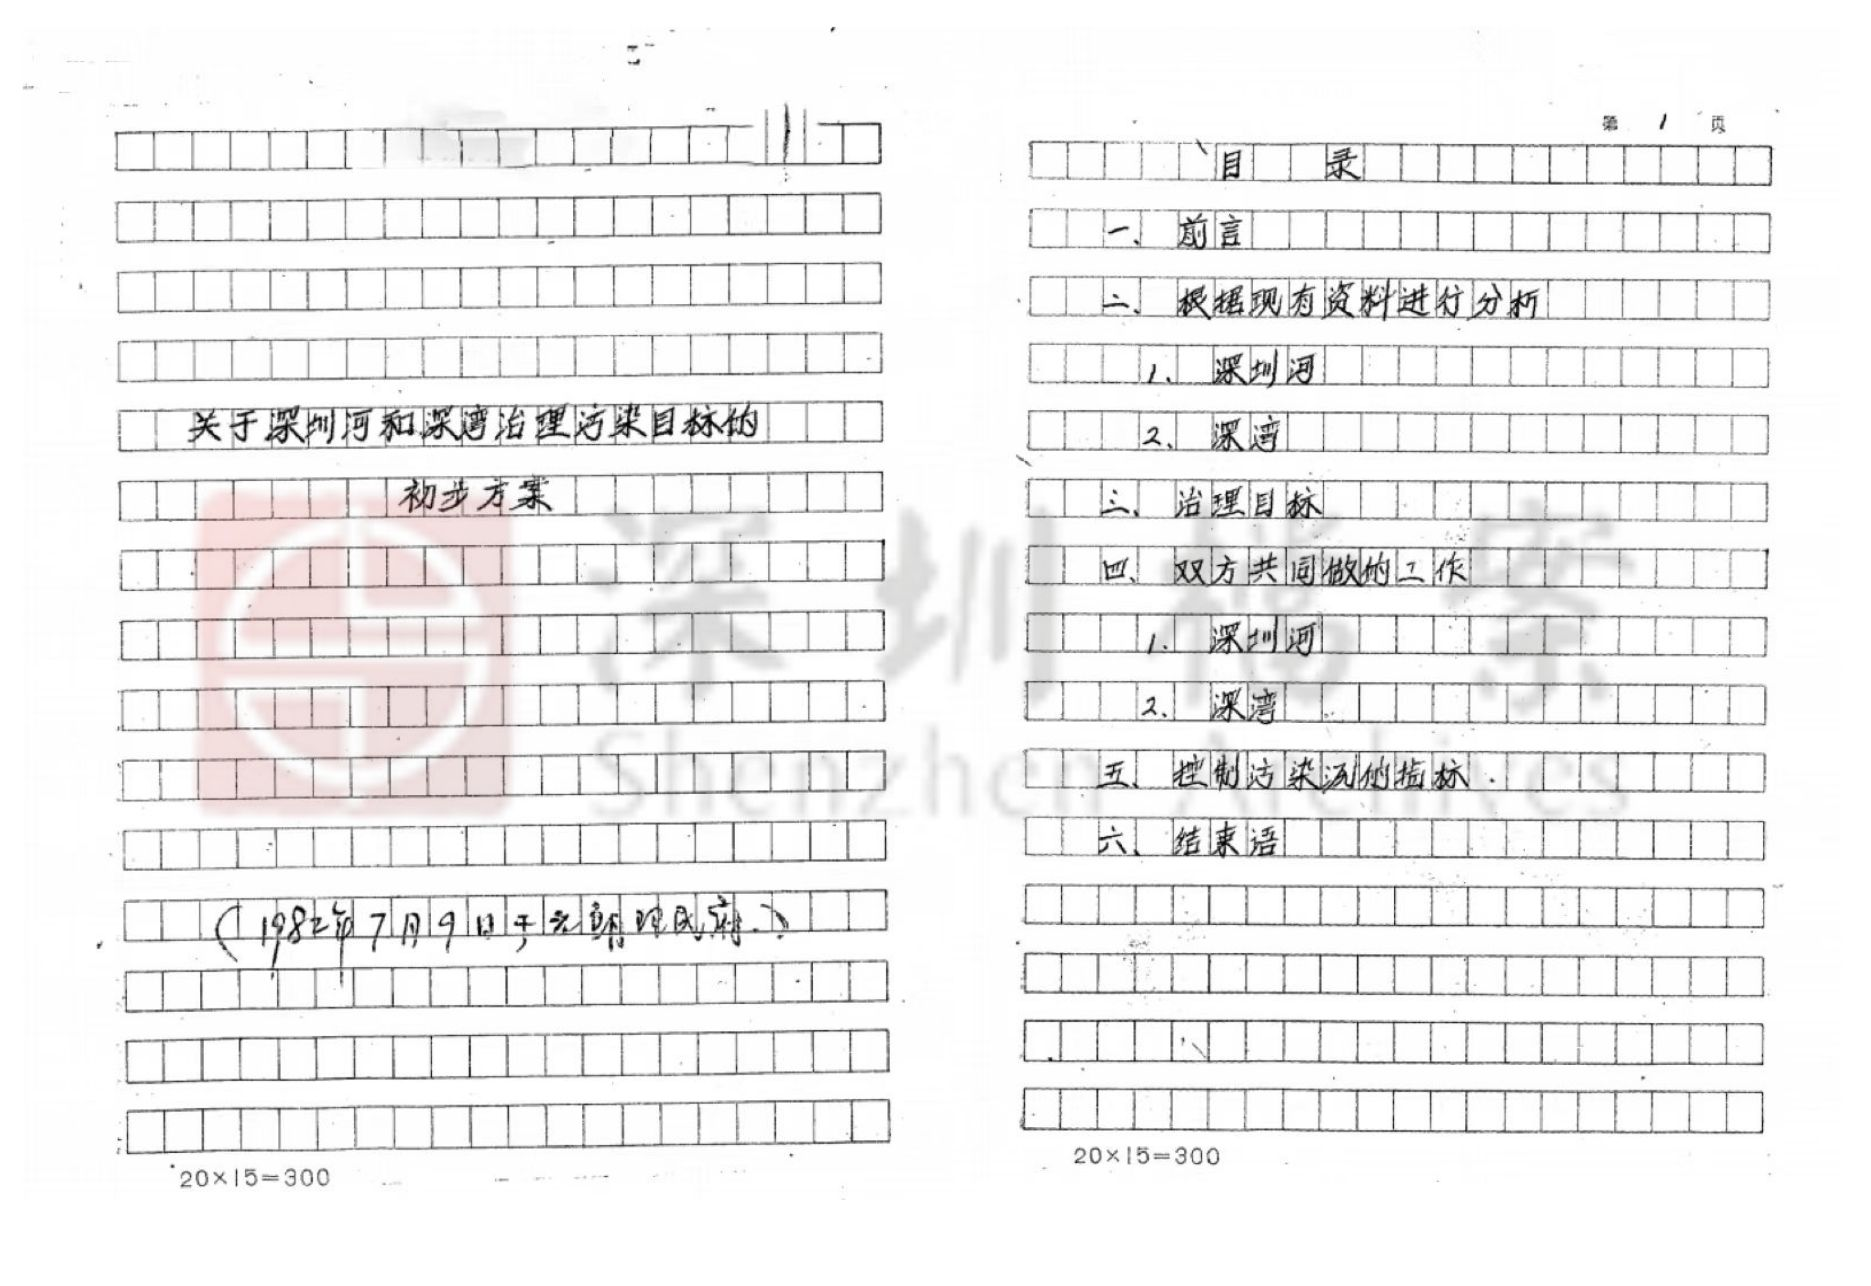 关于深圳河和深湾治理污染目标的
初步方案
(1982年7月9日于元朗理民府.)
20×15=300
第 1 页
目 录
一、前言
二、根据现有资料进行分析
1. 深圳河
2. 深湾
三、治理目标
四、双方共同做的工作
1. 深圳河
2. 深湾
五、控制污染沅的指标.
六、结束语
20×15=300
深圳档案
Shenzhen Archives